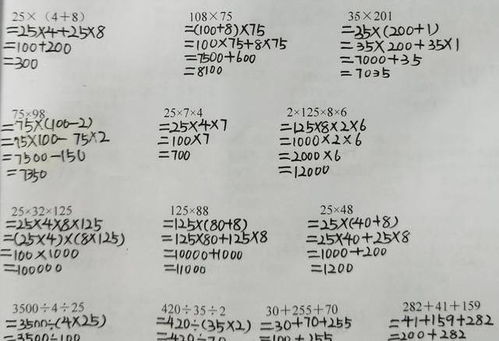 25×（4+8）
=25×4+25×8
=100+200
=300
108×75
=(100+8)×75
=100×75+8×75
=7500+600
=8100
35×201
=35×(200+1)
=35×200+35×1
=7000+35
=7035
75×98
=75×(100-2)
=75×100-75×2
=7500-150
=7350
25×7×4
=25×4×7
=100×7
=700
2×125×8×6
=125×8×2×6
=1000×2×6
=2000×6
=12000
25×32×125
=25×4×8×125
=(25×4)×(8×125)
=100×1000
=100000
125×88
=125×(80+8)
=125×80+125×8
=10000+1000
=11000
25×48
=25×(40+8)
=25×40+25×8
=1000+200
=1200
3500÷4÷25
=3500÷(4×25)
=3500÷100
420÷35÷2
=420÷(35×2)
=420÷70
30+255+70
=30+70+255
=100+255
282+41+159
=41+159+282
=200+282